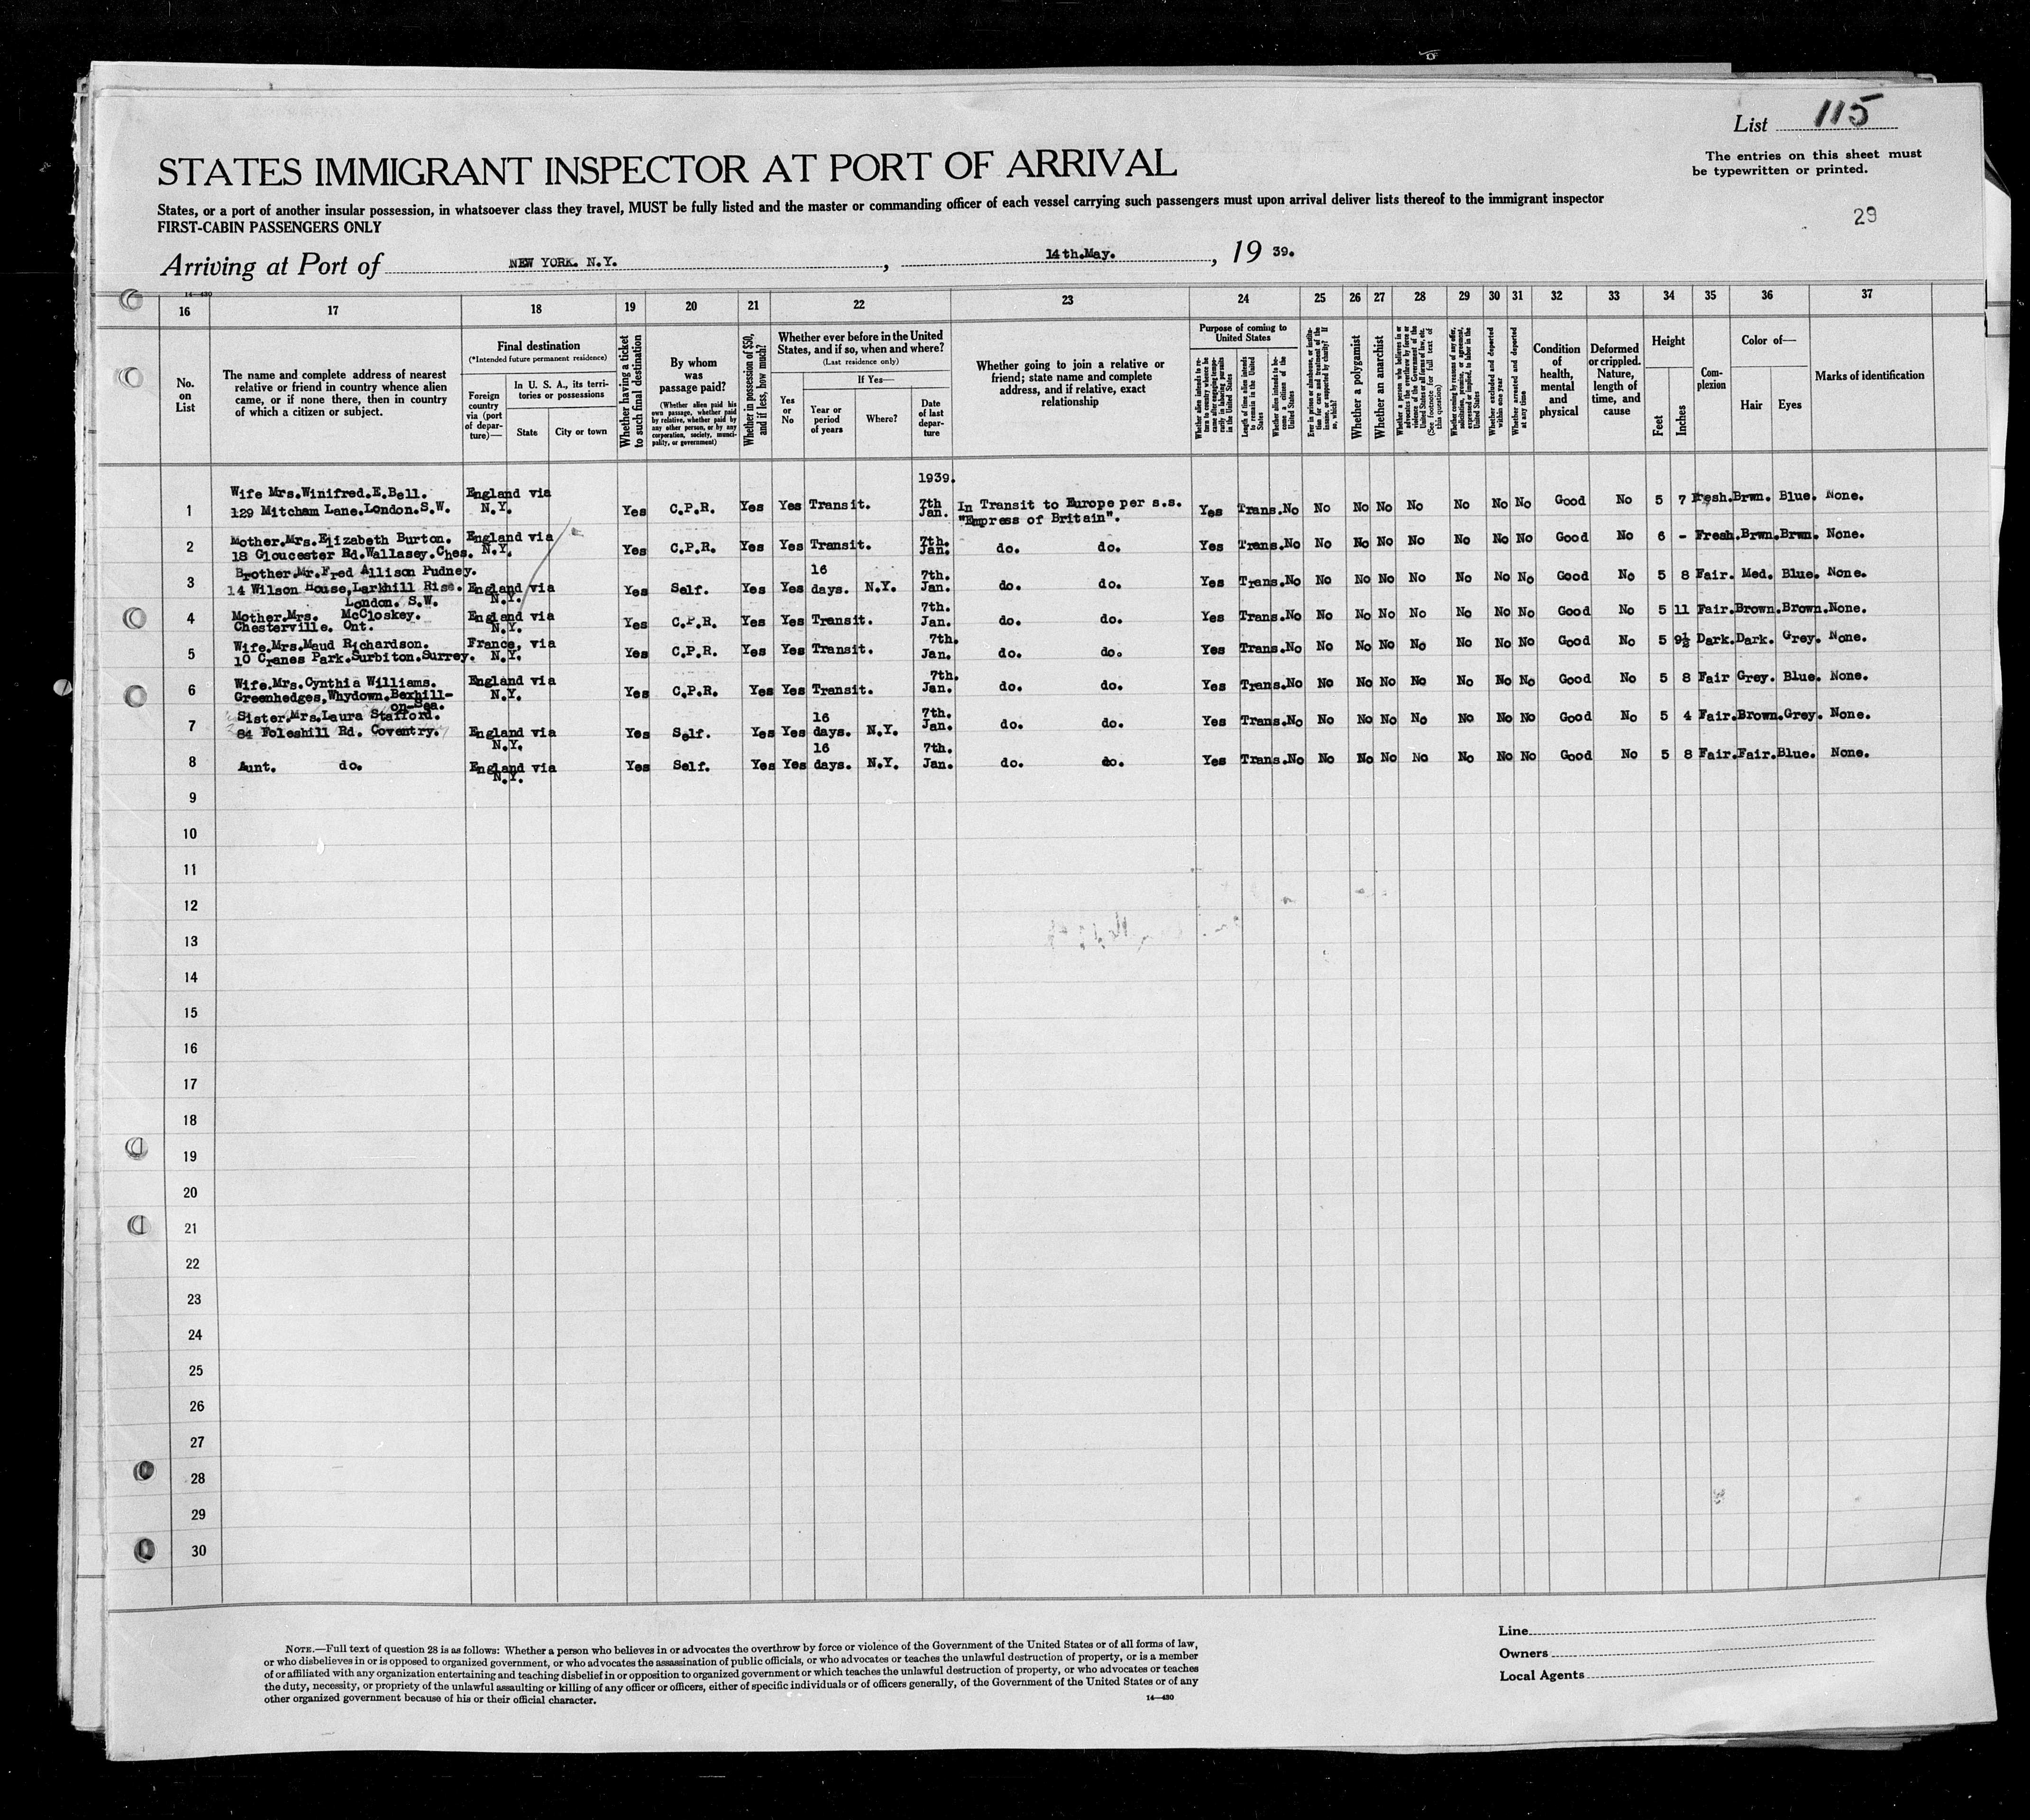 List 115
The entries on this sheet must
be typewritten or printed.
STATES IMMIGRANT INSPECTOR AT PORT OF ARRIVAL
States, or a port of another insular possession, in whatsoever class they travel, MUST be fully listed and the master or commanding officer of each vessel carrying such passengers must upon arrival deliver lists thereof to the immigrant inspector
FIRST-CABIN PASSENGERS ONLY
29
Arriving at Port of NEW YORK. N.Y. , 14th.May. , 19 39.
14—430
16 17 18 19 20 21 22 23 24 25 26 27 28 29 30 31 32 33 34 35 36 37
No. on List
The name and complete address of nearest relative or friend in country whence alien came, or if none there, then in country of which a citizen or subject.
Final destination
(*Intended future permanent residence)
Foreign country via (port of departure)—
In U. S. A., its territories or possessions
State
City or town
Whether having a ticket to such final destination
By whom was passage paid?
(Whether alien paid his own passage, whether paid by relative, whether paid by any other person, or by any corporation, society, municipality, or government)
Whether in possession of $50, and if less, how much?
Whether ever before in the United States, and if so, when and where?
(Last residence only)
Yes or No
If Yes—
Year or period of years
Where?
Date of last departure
Whether going to join a relative or friend; state name and complete address, and if relative, exact relationship
Purpose of coming to United States
Whether alien intends to return to country whence he came after engaging temporarily in laboring pursuits in the United States
Length of time alien intends to remain in the United States
Whether alien intends to become a citizen of the United States
Ever in prison or almshouse, or institution for care and treatment of the insane, or supported by charity? If so, which?
Whether a polygamist
Whether an anarchist
Whether a person who believes in or advocates the overthrow by force or violence of the Government of the United States or all forms of law, etc. (See footnote for full text of this question)
Whether coming by reason of any offer, solicitation, promise, or agreement, expressed or implied, to labor in the United States
Whether excluded and deported within one year
Whether arrested and deported at any time
Condition of health, mental and physical
Deformed or crippled. Nature, length of time, and cause
Height
Feet
Inches
Complexion
Color of—
Hair
Eyes
Marks of identification
1939.
1 Wife Mrs.Winifred.E.Bell. 129 Mitcham Lane.London.S.W. England via N.Y. Yes C.P.R. Yes Yes Transit. 7th Jan. In Transit to Europe per s.s. "Empress of Britain". Yes Trans. No No No No No No No No Good No 5 7 Fresh. Brwn. Blue. None.
2 Mother.Mrs.Elizabeth Burton. 18 Gloucester Rd.Wallasey.Ches. England via N.Y. Yes C.P.R. Yes Yes Transit. 7th. Jan. do. do. Yes Trans. No No No No No No No No Good No 6 - Fresh. Brwn. Brwn. None.
3 Brother.Mr.Fred Allison Pudney. 14 Wilson House,Larkhill Rise. London. S.W. England via N.Y. Yes Self. Yes Yes 16 days. N.Y. 7th. Jan. do. do. Yes Trans. No No No No No No No No Good No 5 8 Fair. Med. Blue. None.
4 Mother.Mrs. McCloskey. Chesterville. Ont. England via N.Y. Yes C.P.R. Yes Yes Transit. 7th. Jan. do. do. Yes Trans. No No No No No No No No Good No 5 11 Fair. Brown. Brown. None.
5 Wife.Mrs.Maud Richardson. 10 Cranes Park.Surbiton.Surrey. France, via N.Y. Yes C.P.R. Yes Yes Transit. 7th. Jan. do. do. Yes Trans. No No No No No No No No Good No 5 9½ Dark. Dark. Grey. None.
6 Wife.Mrs.Cynthia Williams. Greenhedges,Whydown.Bexhill-on-Sea. England via N.Y. Yes C.P.R. Yes Yes Transit. 7th. Jan. do. do. Yes Trans. No No No No No No No No Good No 5 8 Fair Grey. Blue. None.
7 Sister.Mrs.Laura Stafford. 84 Foleshill Rd. Coventry. England via N.Y. Yes Self. Yes Yes 16 days. N.Y. 7th. Jan. do. do. Yes Trans. No No No No No No No No Good No 5 4 Fair. Brown. Grey. None.
8 Aunt. do. England via N.Y. Yes Self. Yes Yes 16 days. N.Y. 7th. Jan. do. do. Yes Trans. No No No No No No No No Good No 5 8 Fair. Fair. Blue. None.
9
10
11
12
13
14
15
16
17
18
19
20
21
22
23
24
25
26
27
28
29
30
NOTE.—Full text of question 28 is as follows: Whether a person who believes in or advocates the overthrow by force or violence of the Government of the United States or of all forms of law,
or who disbelieves in or is opposed to organized government, or who advocates the assassination of public officials, or who advocates or teaches the unlawful destruction of property, or is a member
of or affiliated with any organization entertaining and teaching disbelief in or opposition to organized government or which teaches the unlawful destruction of property, or who advocates or teaches
the duty, necessity, or propriety of the unlawful assaulting or killing of any officer or officers, either of specific individuals or of officers generally, of the Government of the United States or of any
other organized government because of his or their official character.
14—430
Line
Owners
Local Agents